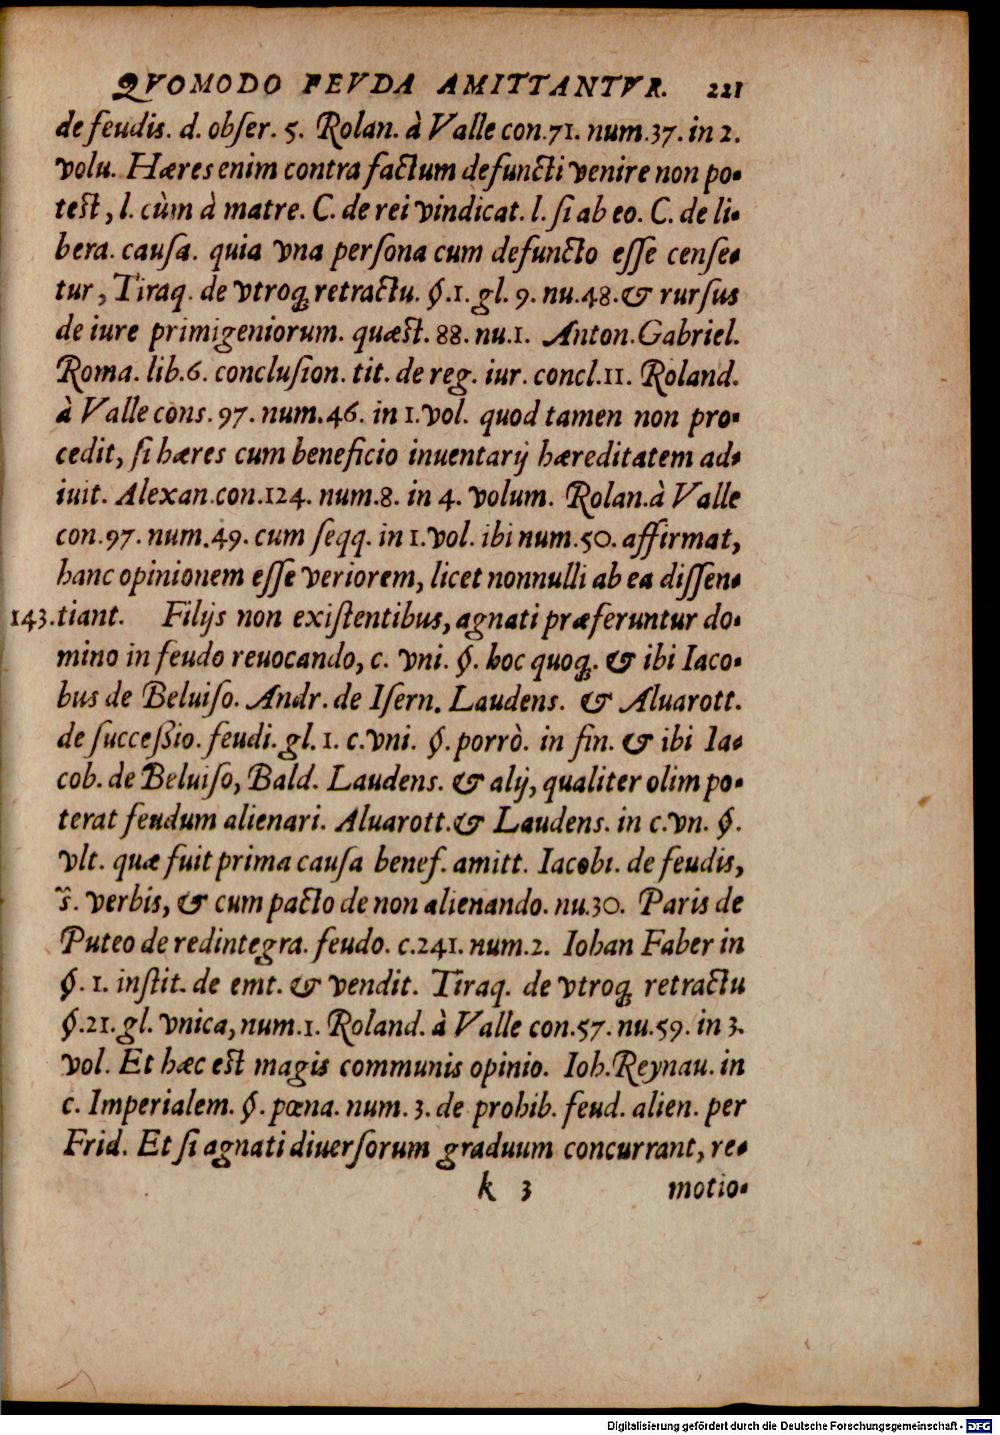 QVOMODO FEVDA AMITTANTVR. 221
de feudis. d. obſer. 5. Rolan. à Valle con.71. num.37. in 2.
volu. Hæres enim contra factum defuncti venire non po-
teſt, l. cùm à matre. C. de rei vindicat. l. ſi ab eo. C. de li-
bera. cauſa. quia vna perſona cum defuncto eſſe cenſe-
tur, Tiraq. de vtroq; retractu. §.1. gl. 9. nu.48. & rurſus
de iure primigeniorum. quæſt. 88. nu.1. Anton. Gabriel.
Roma. lib.6. concluſion. tit. de reg. iur. concl.11. Roland.
à Valle cons. 97. num.46. in 1. vol. quod tamen non pro-
cedit, ſi hæres cum beneficio inuentarij hæreditatem ad-
iuit. Alexan.con.124. num.8. in 4. volum. Rolan.à Valle
con.97. num.49. cum ſeqq. in 1. vol. ibi num.50. affirmat,
hanc opinionem eſſe veriorem, licet nonnulli ab ea diſſen-
143. tiant. Filijs non exiſtentibus, agnati præferuntur do-
mino in feudo reuocando, c. vni. §. hoc quoq;. & ibi Iaco-
bus de Beluiſo. Andr. de Iſern. Laudens. & Aluarott.
de ſucceßio. feudi. gl. 1. c. vni. §. porrò. in fin. & ibi Ia-
cob. de Beluiſo, Bald. Laudens. & alij, qualiter olim po-
terat feudum alienari. Aluarott. & Laudens. in c. vn. §.
vlt. quæ fuit prima cauſa benef. amitt. Iacobi. de feudis,
ṽſ. verbis, & cum pacto de non alienando. nu.30. Paris de
Puteo de redintegra. feudo. c.241. num.2. Iohan Faber in
§. 1. inſtit. de emt. & vendit. Tiraq. de vtroq; retractu
§.21. gl. vnica, num.1. Roland. à Valle con.57. nu.59. in 3.
vol. Et hæc eſt magis communis opinio. Ioh. Reynau. in
c. Imperialem. §. pœna. num. 3. de prohib. feud. alien. per
Frid. Et ſi agnati diuerſorum graduum concurrant, re-
k 3 motio-
Digitalisierung gefördert durch die Deutsche Forschungsgemeinschaft - DFG